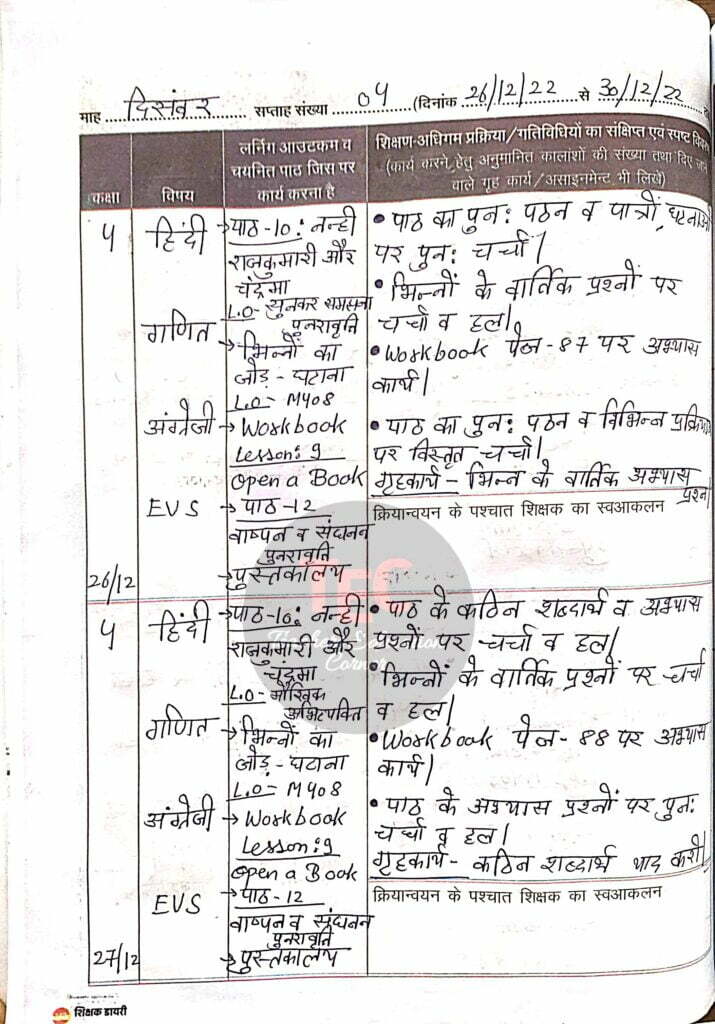 माह दिसंबर सप्ताह संख्या 04 (दिनांक 26/12/22 से 30/12/22
कक्षा
विषय
लर्निंग आउटकम व
चयनित पाठ जिस पर
कार्य करना है
शिक्षण-अधिगम प्रक्रिया/गतिविधियों का संक्षिप्त एवं स्पष्ट
(कार्य करने हेतु अनुमानित कालांशों की संख्या तथा दिए जाने
वाले गृह कार्य/असाइनमेंट भी लिखें)
5
26/12
हिंदी
गणित
अंग्रेजी
EVS
→पाठ-10: नन्ही
राजकुमारी और
चंद्रमा
L.O- सुनकर समझना
पुनरावृति
→ भिन्नों का
जोड़-घटाना
L.O- M408
→ Workbook
Lesson: 9
Open a Book
→ पाठ-12
वाष्पन व संघनन
पुनरावृति
→पुस्तकालय
• पाठ का पुन: पठन व पात्रों, घटनाओं
पर पुन: चर्चा।
• भिन्नों के वार्तिक प्रश्नों पर
चर्चा व हल।
• Workbook पेज-87 पर अभ्यास
कार्य।
• पाठ का पुन: पठन व विभिन्न
पर विस्तृत चर्चा।
गृहकार्य - भिन्न के वार्तिक अभ्यास
प्रश्न।
क्रियान्वयन के पश्चात शिक्षक का स्वआकलन
5
27/12
हिंदी
गणित
अंग्रेजी
EVS
→पाठ-10: नन्ही
राजकुमारी और
चंद्रमा
L.O- मौखिक
अभिव्यक्ति
→ भिन्नों का
जोड़-घटाना
L.O- M408
→ Workbook
Lesson: 9
Open a Book
→ पाठ-12
वाष्पन व संघनन
पुनरावृति
→पुस्तकालय
• पाठ के कठिन शब्दार्थ व अभ्यास
प्रश्नों पर चर्चा व हल।
• भिन्नों के वार्तिक प्रश्नों पर चर्चा
व हल।
• Workbook पेज-88 पर अभ्यास
कार्य।
• पाठ के अभ्यास प्रश्नों पर पुन:
चर्चा व हल।
गृहकार्य- कठिन शब्दार्थ याद करो।
क्रियान्वयन के पश्चात शिक्षक का स्वआकलन
TEC
Corner
शिक्षक डायरी